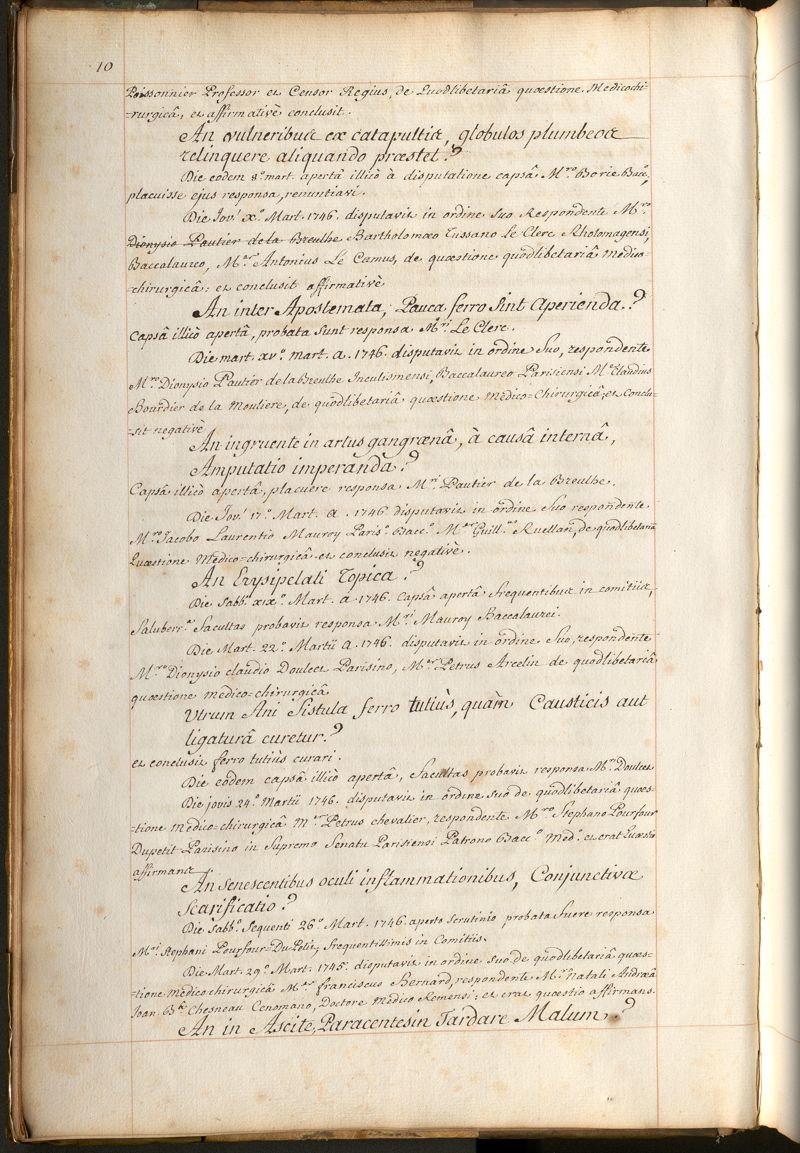 10
Poissonnier Professor et Censor Regius, de Quodlibetariâ quæstione Medicochi-
-rurgicâ, et affirmativè conclusit.
An vulneribus ex catapultis, globulos plumbeos
relinquere aliquando præstet?
Die eodem 8.º mart. apertâ illicò à disputatione capsâ M.ro Borie Bac.º,
placuisse ejus responsa, renuntiavi.
Die Jov.i x.º Mart. 1746. disputavit in ordine suo Respondente M.ro
Dionysio Pautier de la Breuthe Bartholomæo Tussano Le Clerc Rhotomagensi,
Baccalaureo, M.er Antonius Le Camus, de quæstione quodlibetariâ medico-
-chirurgicâ: et conclusit affirmativè
An inter Apostemata, Pauca ferro sint aperienda.?
Capsâ illicò apertâ, probata sunt responsa M.ri Le Clerc.
Die mart. xv.º mart. a. 1746. disputavit in ordine suo, respondente
M.ro Dionysio Pautier de la Breuthe Inculismensi, Baccalaureo Parisiensi M.er Claudius
Bourdier de la Moutiere, de quodlibetariâ quæstione Medico-Chirurgicâ, et Conclu-
-sit negativè
An ingruente in artus gangrænâ, à causâ internâ,
Amputatio imperanda?
Capsâ illicò apertâ, placuere responsa M.ri Pautier de la Breuthe.
Die Jov.i 17.º Mart. a. 1746 disputavit in ordine suo respondente
M.ro Jacobo Laurentio Mauroy Paris.º Bacc.º M.er Guill.us Ruellan, de quodlibetariâ
Quæstione Medico-chirurgicâ et conclusit negativè.
An Erysipelati Topica?
Die Sabb.i xix.º Mart. a 1746. Capsâ apertâ frequentibus in comitiis,
Saluberr.a Facultas probavit responsa M.ri Mauroy Baccalaurei.
Die Mart. 22.º Martii a. 1746. disputavit in ordine suo, respondente
M.ro Dionysio Claudio Doulcet Parisino, M.er Petrus Arcelin de quodlibetariâ
quæstione medico-chirurgicâ
Utrum Ani Fistula ferro tutiùs, quàm Causticis aut
ligaturâ curetur.?
et conclusit ferro tutiùs curari.
Die eodem capsâ illicò apertâ, Facultas probavit responsa M.ri Doulcet
Die jovis 24.º Martii 1746. disputavit in ordine suo de quodlibetariâ quæs-
-tione medico-chirurgicâ M.er Petrus chevalier, respondente M.ro Stephano Pourfour
Dupetit Parisino in Supremo Senatu Parisiensi Patrono Bacc.º Med.º et erat Quæstio
affirmans
An senescentibus oculi inflammationibus, Conjunctivæ
Scarificatio?
Die Sabb.º Sequenti 26.º Mart. 1746 aperto scrutinio probata fuere responsa
M.ri Stephani Pourfour-DuPetit, frequentissimis in Comitiis.
Die Mart. 29.º Mart. 1745. disputavit in ordine suo de quodlibetariâ quæs-
-tione medico chirurgicâ M.er franciscus Bernard, respondente M.ro natali Andræâ
Joan B.ta Chesneau Cenomano, Doctore Medico Remensi; et erat quæstio affirmans.
An in Ascite, Paracentesin Tardare Malum?